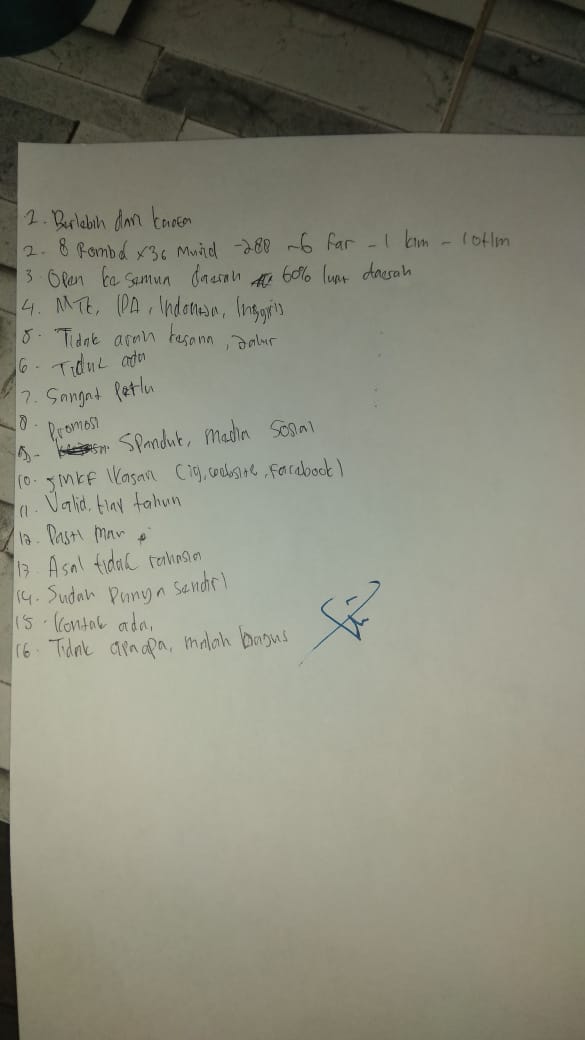 1. Berlebih dari kuota
2. 8 Rombel x36 Murid -288 ~6 far - 1 kim - 1 otlm
3. Open ke semua daerah 60% luar daerah
4. MTK, IPA, Indonesia, Inggris
5. Tidak arah kesana, Jalur
6. Tidak ada
7. Sangat Perlu
8. Promosi
9. Spanduk, Media Sosial
10. SMKF IKasari (ig, website, Facebook)
11. Valid, tiap tahun
12. Pasti Mau
13. Asal tidak rahasia
14. Sudah Punya Sendiri
15. Kontak ada,
16. Tidak apaapa, malah bagus